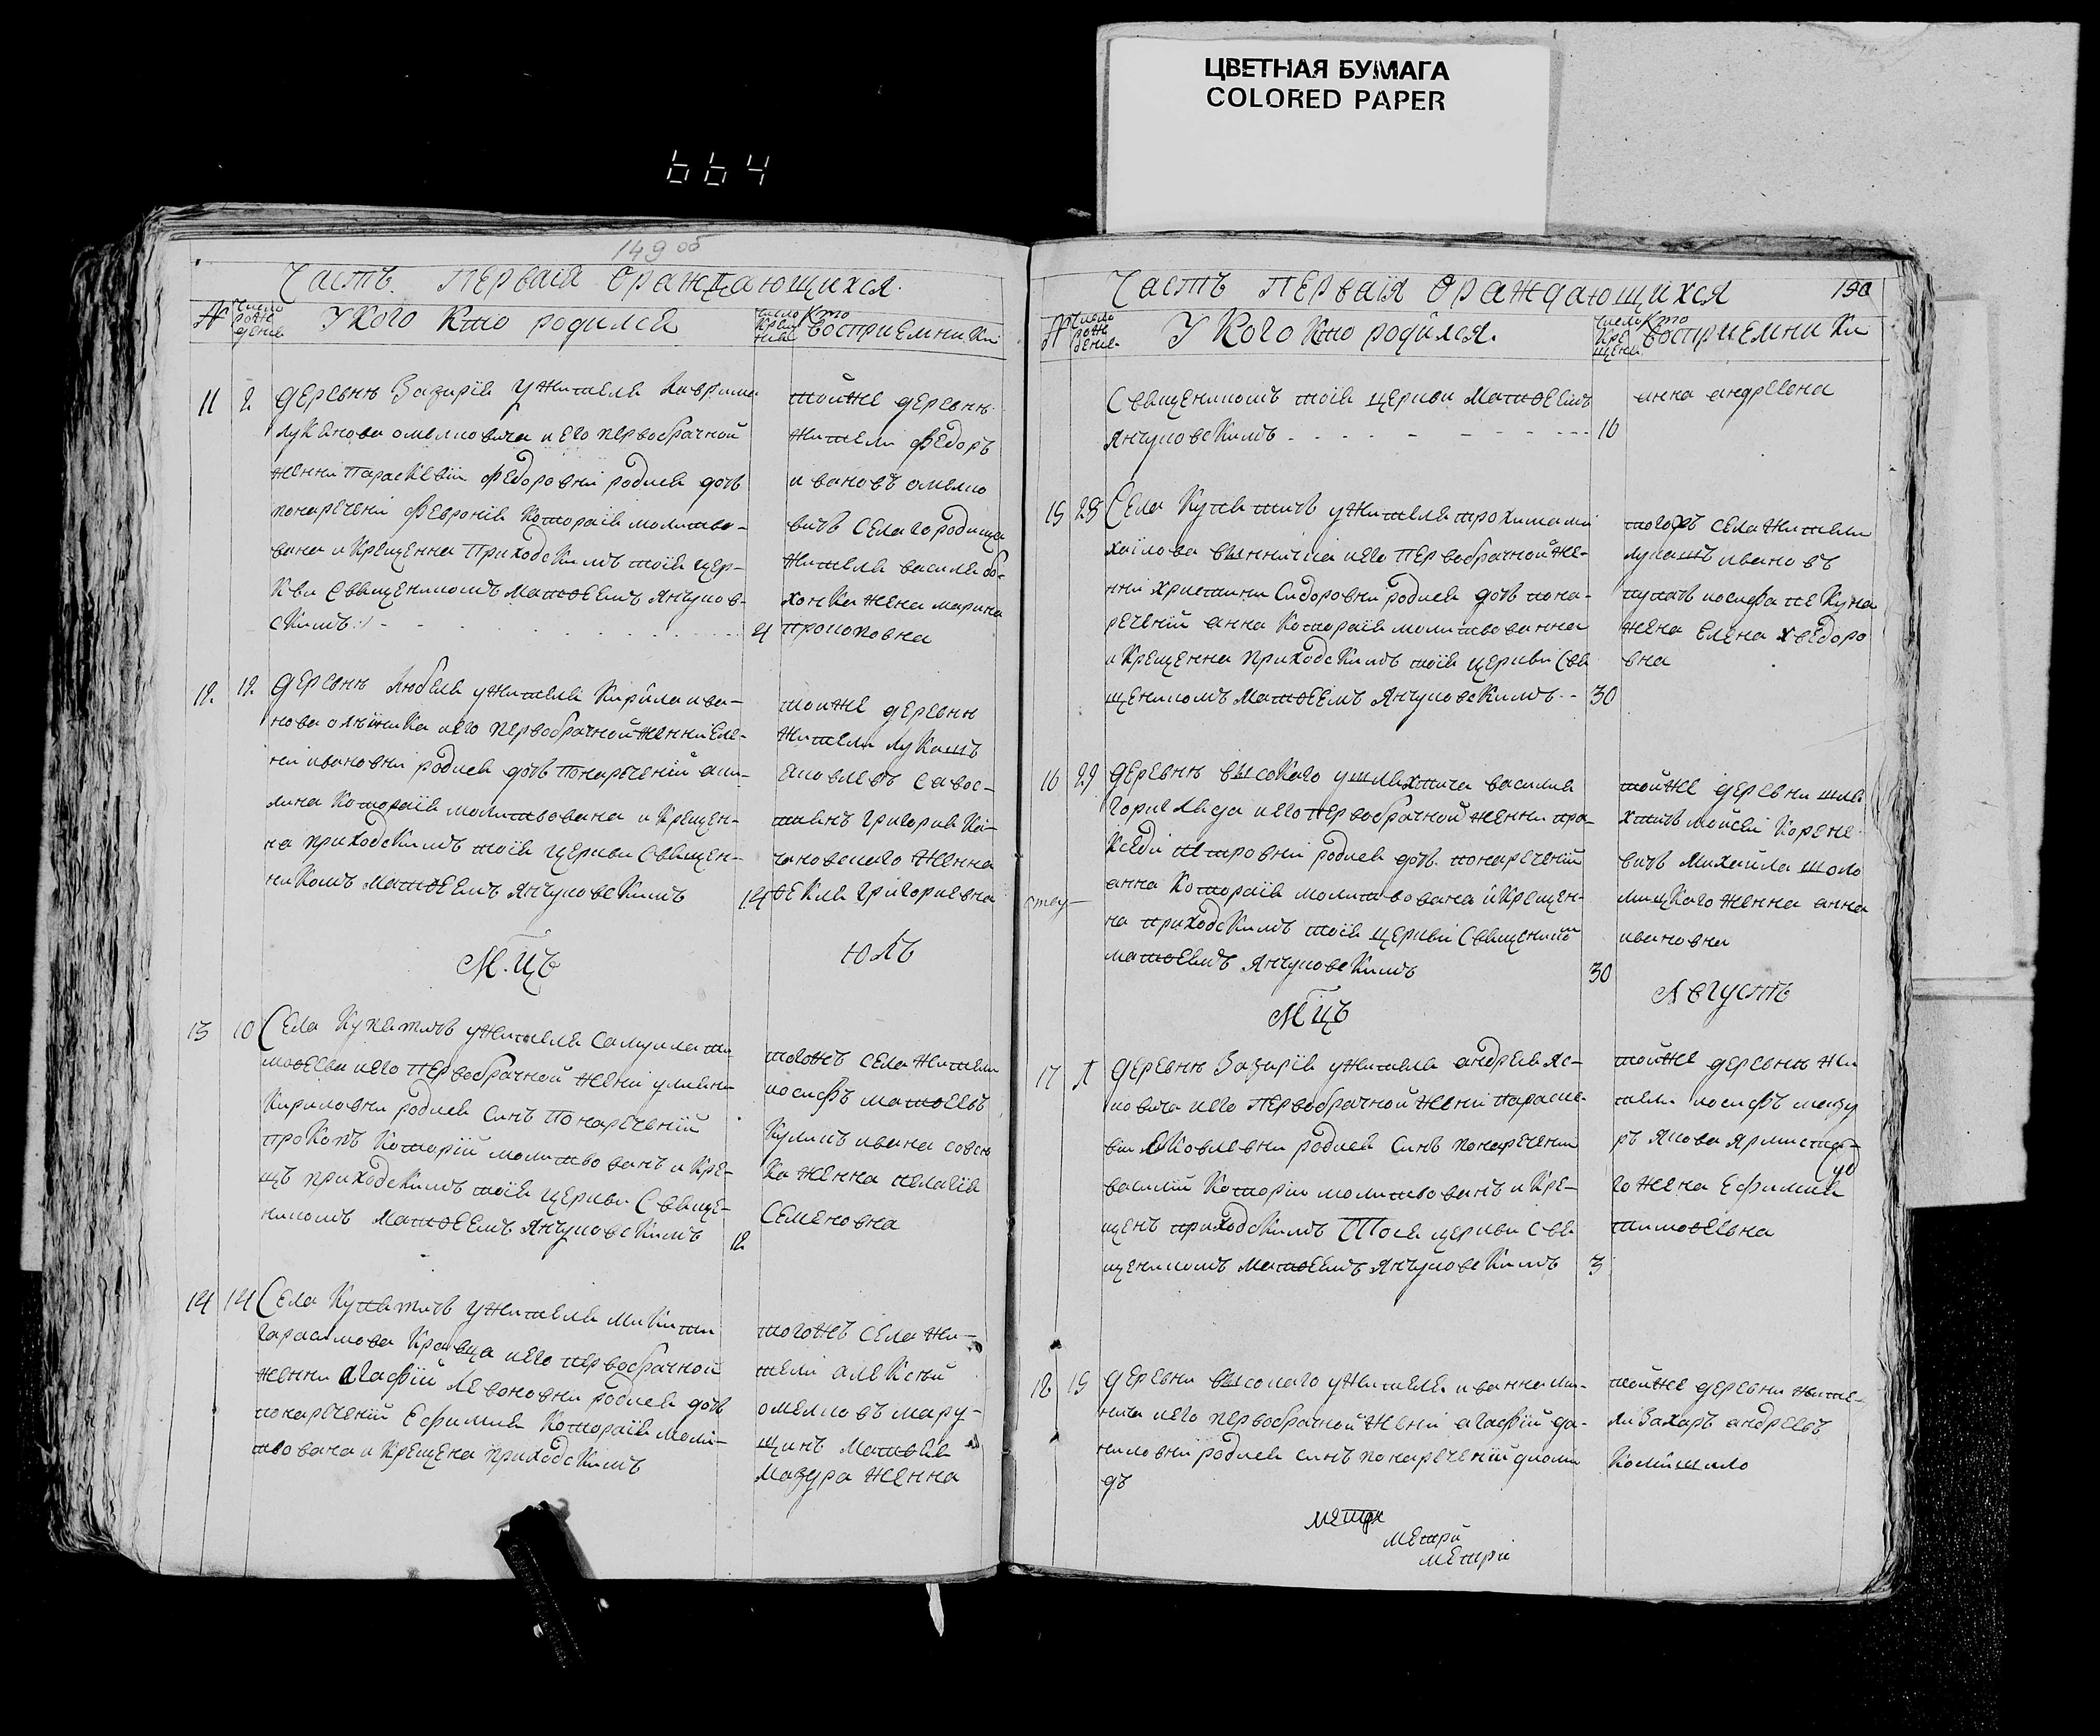 ЦВЕТНАЯ БУМАГА
COLORED PAPER
664
149 об
Часть Первая Ораждающихся.
№ Число рожденія У Кого Кто родился Число Крещенія Кто Восприемники
11 2 Деревнѣ Зазирія у жителя Лаврина
Лукянова омеляновича и его первобрачной
женни Параскевіи Федоровни родися дочь
понаречени Феврония Которая молитво-
вана и Крещенна Приходскимъ тоия цер-
Кви Священикомъ Матθеемъ Янчуков-
скимъ 4
тойже деревнѣ
жители Федоръ
ивановъ омеляно
вичъ Села городища
жителя василя
хонка жена марина
прокоповна
12 12 Деревнѣ Любеля у жителя Кирила ива-
нова олыйника и его первобрачной женни Еле-
ни ивановни родися дочь понаречений аки-
лина Которая молитвована и Крещен-
на приходскимъ тоия Церкви Священ-
никомъ Матθеемъ Янчуковскимъ 14
тойже деревнѣ
жители Лукашъ
яковлевъ Савос-
тянъ григория Ка-
чановскаго женна
θекля григориевна
М.ЦЪ Юль
13 10 Села Купятичъ у жителя Самуила ти-
моθеева и его первобрачной жени уляни
Кириловни родися Синъ Понаречений
прокопъ Которій молитвованъ и Кре-
щъ приходскимъ тоия Церкви Священ-
никомъ Матθеемъ Янчуковскимъ 12
тогожъ Села жители
иосифъ матθеевъ
Кулишъ ивана
ка женна пелагия
Семеновна
14 14 Села Купятичъ у жителя Микити
гарасимова Кравца и его первобрачной
женни агафіи Левоновни родися дочь
понаречений Ефимия Которая моли-
твована и Крещена приходскимъ
тогожъ Села жи-
тели алексѣй
омеляновъ мару-
щинъ матθея
мазура женна
Часть Первая Ораждающихся 150
№ Число рожденія У Кого Кто родился. Число Крещеня Кто Восприемники
Священикомъ тоия церкви Матθеемъ
Янчуковскимъ 16
анна андреевна
15 28 Села Купятичъ у жителя трохима ми-
хаилова винничка и его первобрачной же-
нни христини Сидоровни родися дочь пона-
речений анна Которая молитвованна
и Крещенна приходскимъ тоия церкви Свя
щеникомъ Матθеемъ Янчуковскимъ 30
тогожъ села жители
лукашъ ивановъ
иосифа
жена Елена хведоро
вна
16 29 Деревнѣ высокаго у шляхтича василия
и его первобрачной женни пра-
Кседи петровни родися дочь понаречений
анна Которая молитвована и Крещен-
на приходскимъ тоия церкви Священико
матθеемъ Янчуковскимъ 30
тойже деревни шля
хтичъ моисей Корене
вичъ Михайла шоло
мицкаго женна анна
ивановна
МЦЪ Августъ
17 Деревнѣ Зазирія у жителя андрея Ле-
и его первобрачной жени параске-
ви яковлевни родися Синъ понаречени
василий Которіи молитвованъ и Кре-
щенъ приходскимъ Тоея церкви Свя
щеникомъ Матθеемъ Янчуковскимъ 3
тойже деревнѣ жи
тели иосифъ мазу
ръ якова
го жена Ефимия
тимоθеевна
18 15 Деревни высокаго у жителя иванна ми-
нича и его первобрачной жени агафіи да-
ниловни родися синъ понаречений диоми
дъ
тойже деревни жите-
ли Захаръ андреевъ
метри
метри